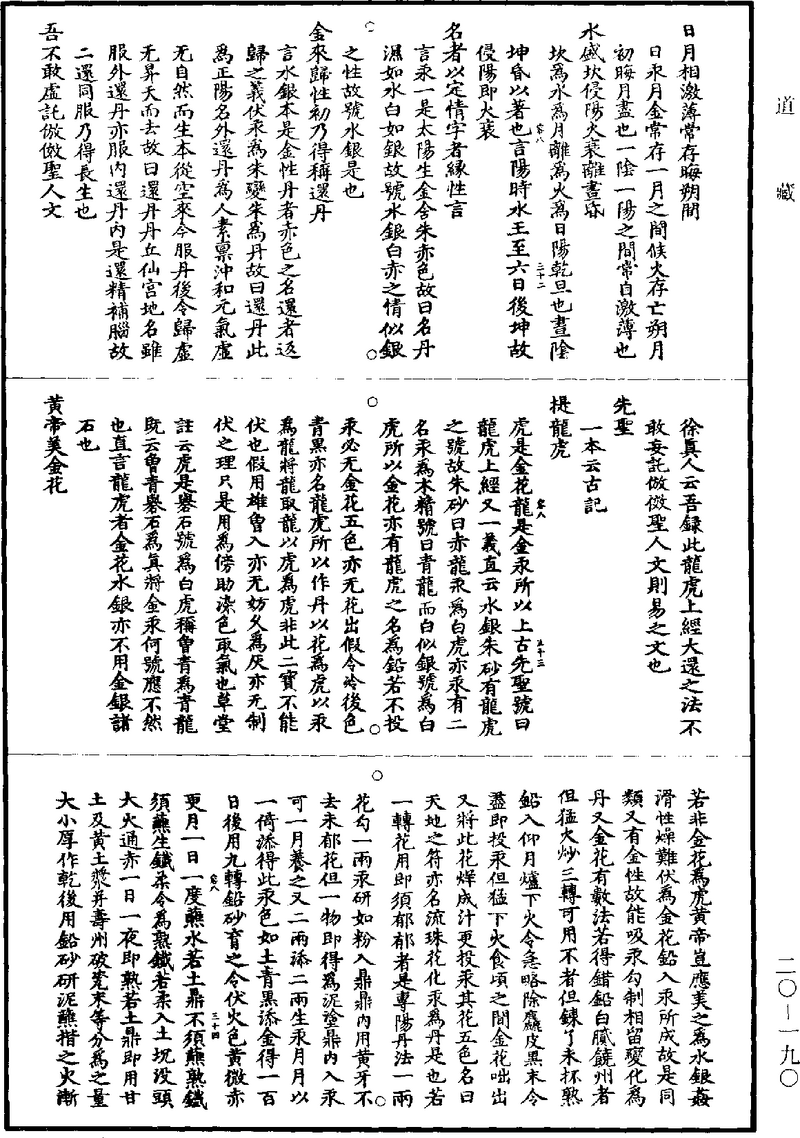 道藏
日月相激薄常存晦朔間
日汞月金常存一月之間候火存亡朔月
初晦月盡也一陰一陽之間常自激薄也
水盛坎侵陽火衰離晝昏
坎爲水爲月離爲火爲日陽乾旦也晝陰
坤昏以著也言陽時水王至六日後坤故
侵陽即火衰
名者以定情字者緣性言
言汞一是太陽生金含朱赤色故曰名丹
濕如水白如銀故號水銀白赤之情似銀
之性故號水銀是也
金來歸性初乃得稱還丹
言水銀本是金性丹者赤色之名還者返
歸之義伏汞爲朱變朱爲丹故曰還丹此
爲正陽名外還丹爲人素禀沖和元氣虛
无自然而生本從空來今服丹後令歸虛
无昇天而去故曰還丹丹丘仙宮地名雖
服外還丹亦服內還丹內是還精補腦故
二還同服乃得長生也
吾不敢虛託倣傚聖人文
徐真人云吾録此龍虎上經大還之法不
敢妄託倣傚聖人文則易之文也
先聖
一本云古記
提龍虎
虎是金花龍是金汞所以上古先聖號曰
龍虎上經又一義直云水銀朱砂有龍虎
之號故朱砂曰赤龍汞爲白虎亦汞有二
名汞爲木精號曰青龍而白似銀號爲白
虎所以金花亦有龍虎之名爲鉛若不投
汞必无金花五色亦无花出假令冷後色
青黑亦名龍虎所以作丹以花爲虎以汞
爲龍將龍取龍以虎爲虎非此二寶不能
伏也假用雄曾入亦无妨久爲灰亦无制
伏之理只是用爲傍助染色取氣也草堂
註云虎是礜石號爲白虎稱曾青爲青龍
既云曾青礜石爲真將金汞何號應不然
也直言龍虎者金花水銀亦不用金銀諸
石也
黄帝美金花
若非金花爲虎黄帝豈應美之爲水銀姦
滑性燥難伏爲金花鉛入汞所成故是同
類又有金性故能吸汞勾制相留變化爲
丹又金花有數法若得錯鉛白膩饒州者
但猛火炒三轉可用不者但鍊了未抔熟
鉛入仰月爐下火令急略除麤皮黑末令
盡即投汞但猛下火食頃之間金花咄出
又將此花烊成汁更投汞其花五色名曰
天地之符亦名流珠花化汞爲丹是也若
一轉花用即須郁郁者是專陽丹法一兩
花勾一兩汞研如粉入鼎鼎內用黄牙不
去未郁花但一物即得爲泥塗鼎內入汞
可一月養之又二兩添二兩生汞月月以
一倚添得此汞色如土青黑添金得一百
日後用九轉鉛砂育之令伏火色黄微赤
更月一日一度蘸水若土鼎不須蘸熟鐵
須蘸生鐵柔令爲熟鐵若柔入土坑没頭
大火通赤一日一夜即熟若土鼎即用甘
土及黄土漿并壽州破瓷末等分爲之量
大小厚作乾後用鉛砂研泥蘸揩之火漸
卷八
三十二
卷八
三十三
卷八
三十四
二〇—一九〇